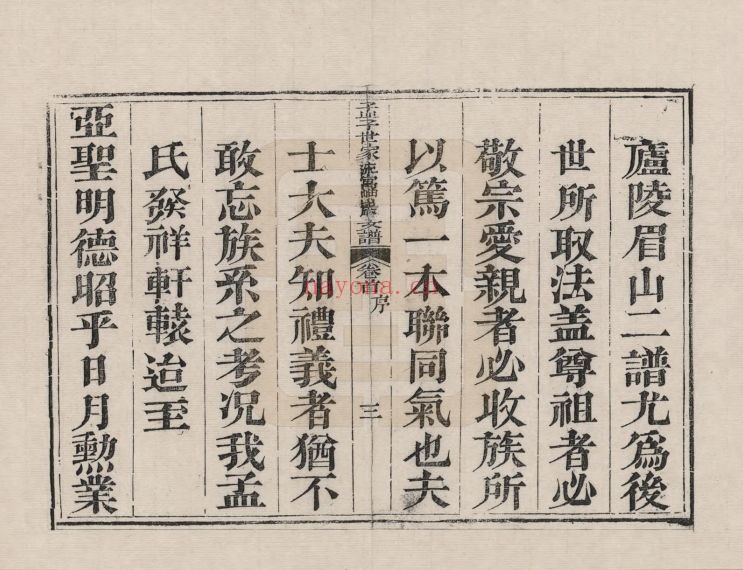 廬陵眉山二譜尤爲後
世所取法盖尊祖者必
敬宗愛親者必收族所
以篤一本聯同氣也夫
孟子世家流寓支譜
卷首序
三
士大夫知禮義者猶不
敢忘族系之考况我孟
氏發祥軒轅迨至
亞聖明德昭乎日月勲業
nayona.cn